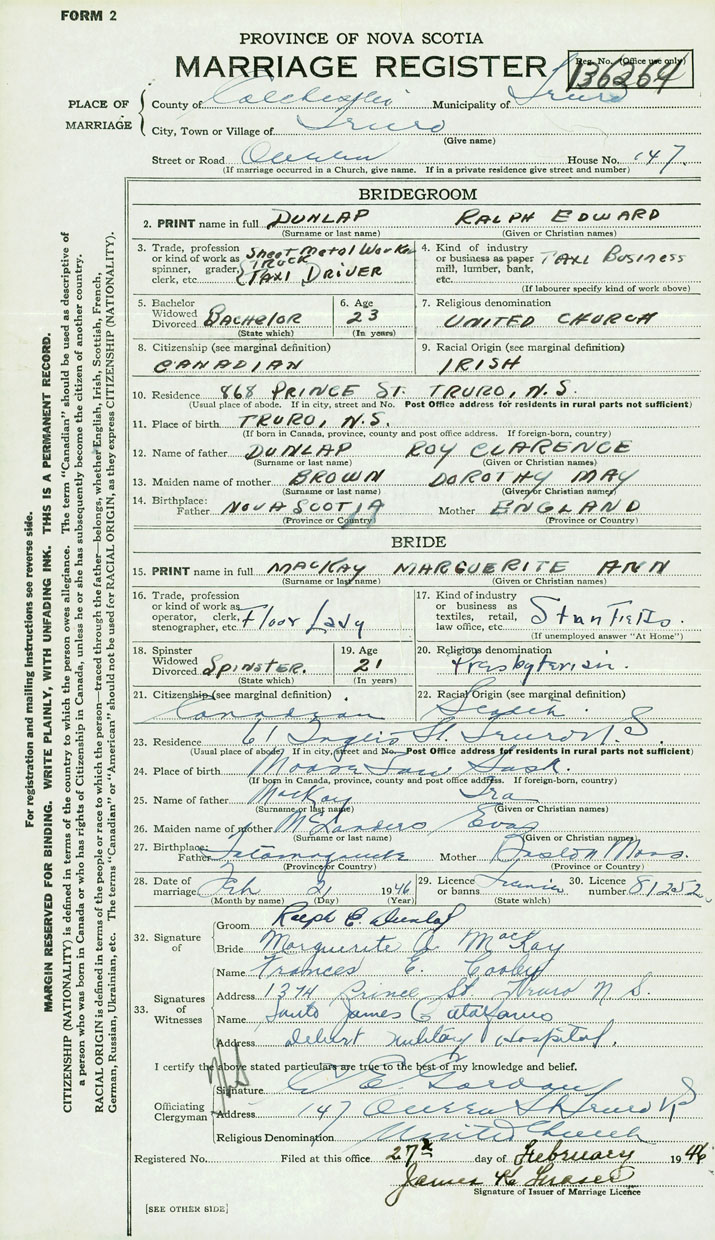 FORM 2
PROVINCE OF NOVA SCOTIA
MARRIAGE REGISTER
Reg. No. (Office use only)
136264
PLACE OF MARRIAGE
County of Colchester Municipality of Truro
City, Town or Village of Truro
(Give name)
Street or Road Queen House No. 147
(If marriage occurred in a Church, give name. If in a private residence give street and number)
BRIDEGROOM
2. PRINT name in full DUNLAP RALPH EDWARD
(Surname or last name) (Given or Christian names)
3. Trade, profession or kind of work as spinner, grader, clerk, etc. Sheet Metal Worker TRUCK TAXI DRIVER
4. Kind of industry or business as paper mill, lumber, bank, etc. TAXI BUSINESS
(If labourer specify kind of work above)
5. Bachelor Widowed Divorced BACHELOR
(State which)
6. Age 23
(In years)
7. Religious denomination
UNITED CHURCH
8. Citizenship (see marginal definition)
CANADIAN
9. Racial Origin (see marginal definition)
IRISH
10. Residence 868 PRINCE ST. TRURO, N.S.
(Usual place of abode. If in city, street and No. Post Office address for residents in rural parts not sufficient)
11. Place of birth TRURO, N.S.
(If born in Canada, province, county and post office address. If foreign-born, country)
12. Name of father DUNLAP ROY CLARENCE
(Surname or last name) (Given or Christian names)
13. Maiden name of mother BROWN DOROTHY MAY
(Surname or last name) (Given or Christian names)
14. Birthplace: Father NOVA SCOTIA Mother ENGLAND
(Province or Country) (Province or Country)
BRIDE
15. PRINT name in full MACKAY MARGUERITE ANN
(Surname or last name) (Given or Christian names)
16. Trade, profession or kind of work as operator, clerk, stenographer, etc. Floor Lady
17. Kind of industry or business as textiles, retail, law office, etc. Stanfields.
(If unemployed answer "At Home")
18. Spinster Widowed Divorced SPINSTER.
(State which)
19. Age 21
(In years)
20. Religious denomination
Presbyterian.
21. Citizenship (see marginal definition)
Canadian
22. Racial Origin (see marginal definition)
Scotch
23. Residence 61 Inglis St. Truro N.S.
(Usual place of abode. If in city, street and No. Post Office address for residents in rural parts not sufficient)
24. Place of birth Moose Jaw Sask.
(If born in Canada, province, county and post office address. If foreign-born, country)
25. Name of father MacKay Ira
(Surname or last name) (Given or Christian names)
26. Maiden name of mother Eva
(Surname or last name) (Given or Christian names)
27. Birthplace: Father Tatamagouche Mother Boston Mass.
(Province or Country) (Province or Country)
28. Date of marriage Feb 21 1946
(Month by name) (Day) (Year)
29. Licence or banns
(State which)
30. Licence number 81252
32. Signature of
Groom Ralph E. Dunlap
Bride Marguerite A. MacKay
33. Signatures of Witnesses
Name Frances E. Cooley
Address 1374 Prince St. Truro N.S.
Name James
Address Debert Military Hospital.
I certify the above stated particulars are true to the best of my knowledge and belief.
Officiating Clergyman
Signature Gordon
Address 147 Queen St Truro N S
Religious Denomination United Church
Registered No. Filed at this office 27th day of February 1946
James K. Fraser
Signature of Issuer of Marriage Licence
[SEE OTHER SIDE]
For registration and mailing instructions see reverse side.
MARGIN RESERVED FOR BINDING. WRITE PLAINLY, WITH UNFADING INK. THIS IS A PERMANENT RECORD.
CITIZENSHIP (NATIONALITY) is defined in terms of the country to which the person owes allegiance. The term "Canadian" should be used as descriptive of
a person who was born in Canada or who has rights of Citizenship in Canada, unless he or she has subsequently become the citizen of another country.
RACIAL ORIGIN is defined in terms of the people or race to which the person—traced through the father—belongs, whether English, Irish, Scottish, French,
German, Russian, Ukrainian, etc. The terms "Canadian" or "American" should not be used for RACIAL ORIGIN, as they express CITIZENSHIP (NATIONALITY).